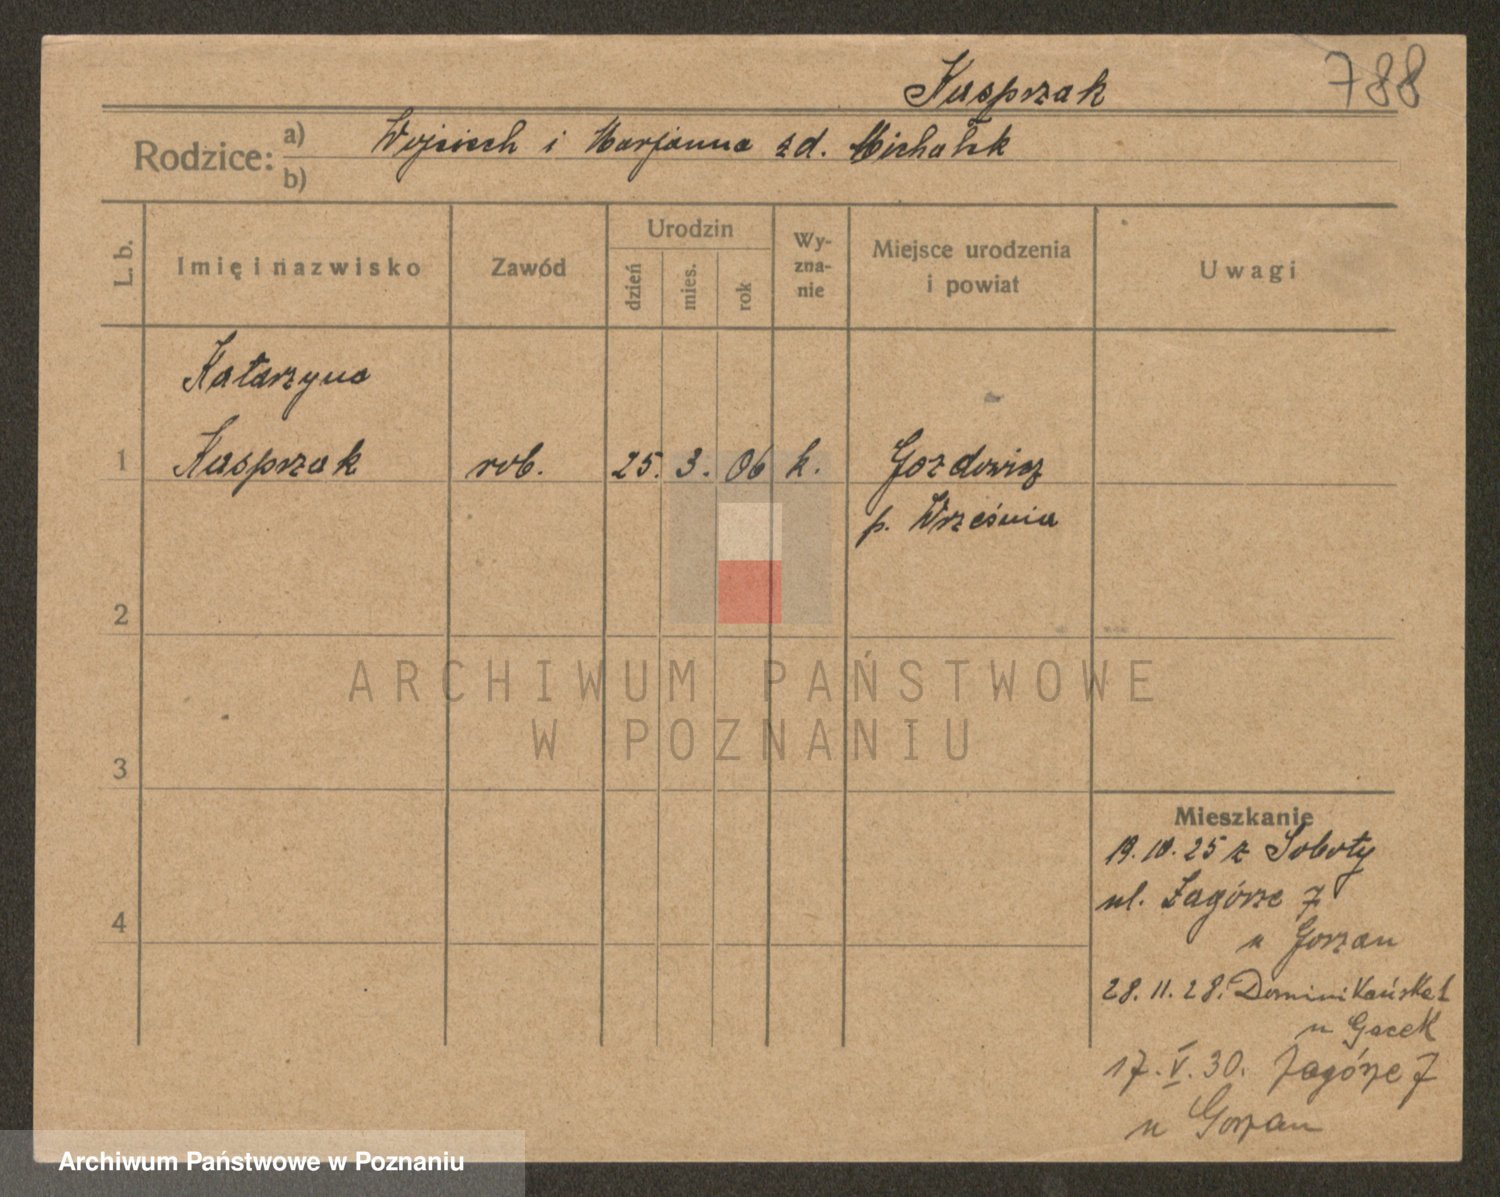 Kasprzak 788
Rodzice: a) Wojciech i Marjanna zd. Michalak
b)
L. b. Imię i nazwisko Zawód Urodzin dzień mies. rok Wy-zna-nie Miejsce urodzenia i powiat Uwagi
Katarzyna
1 Kasprzak rob. 25. 3. 06 k. Gozdowicz
p. Września
2
ARCHIWUM PAŃSTWOWE
W POZNANIU
3
Mieszkanie
19.10.25 z Soboty
ul. Zagórze 7
4
u Gorzan
28.11.28. Dominikańska 1
u Gacek
17.V.30. Zagórze 7
u Gorzan
Archiwum Państwowe w Poznaniu